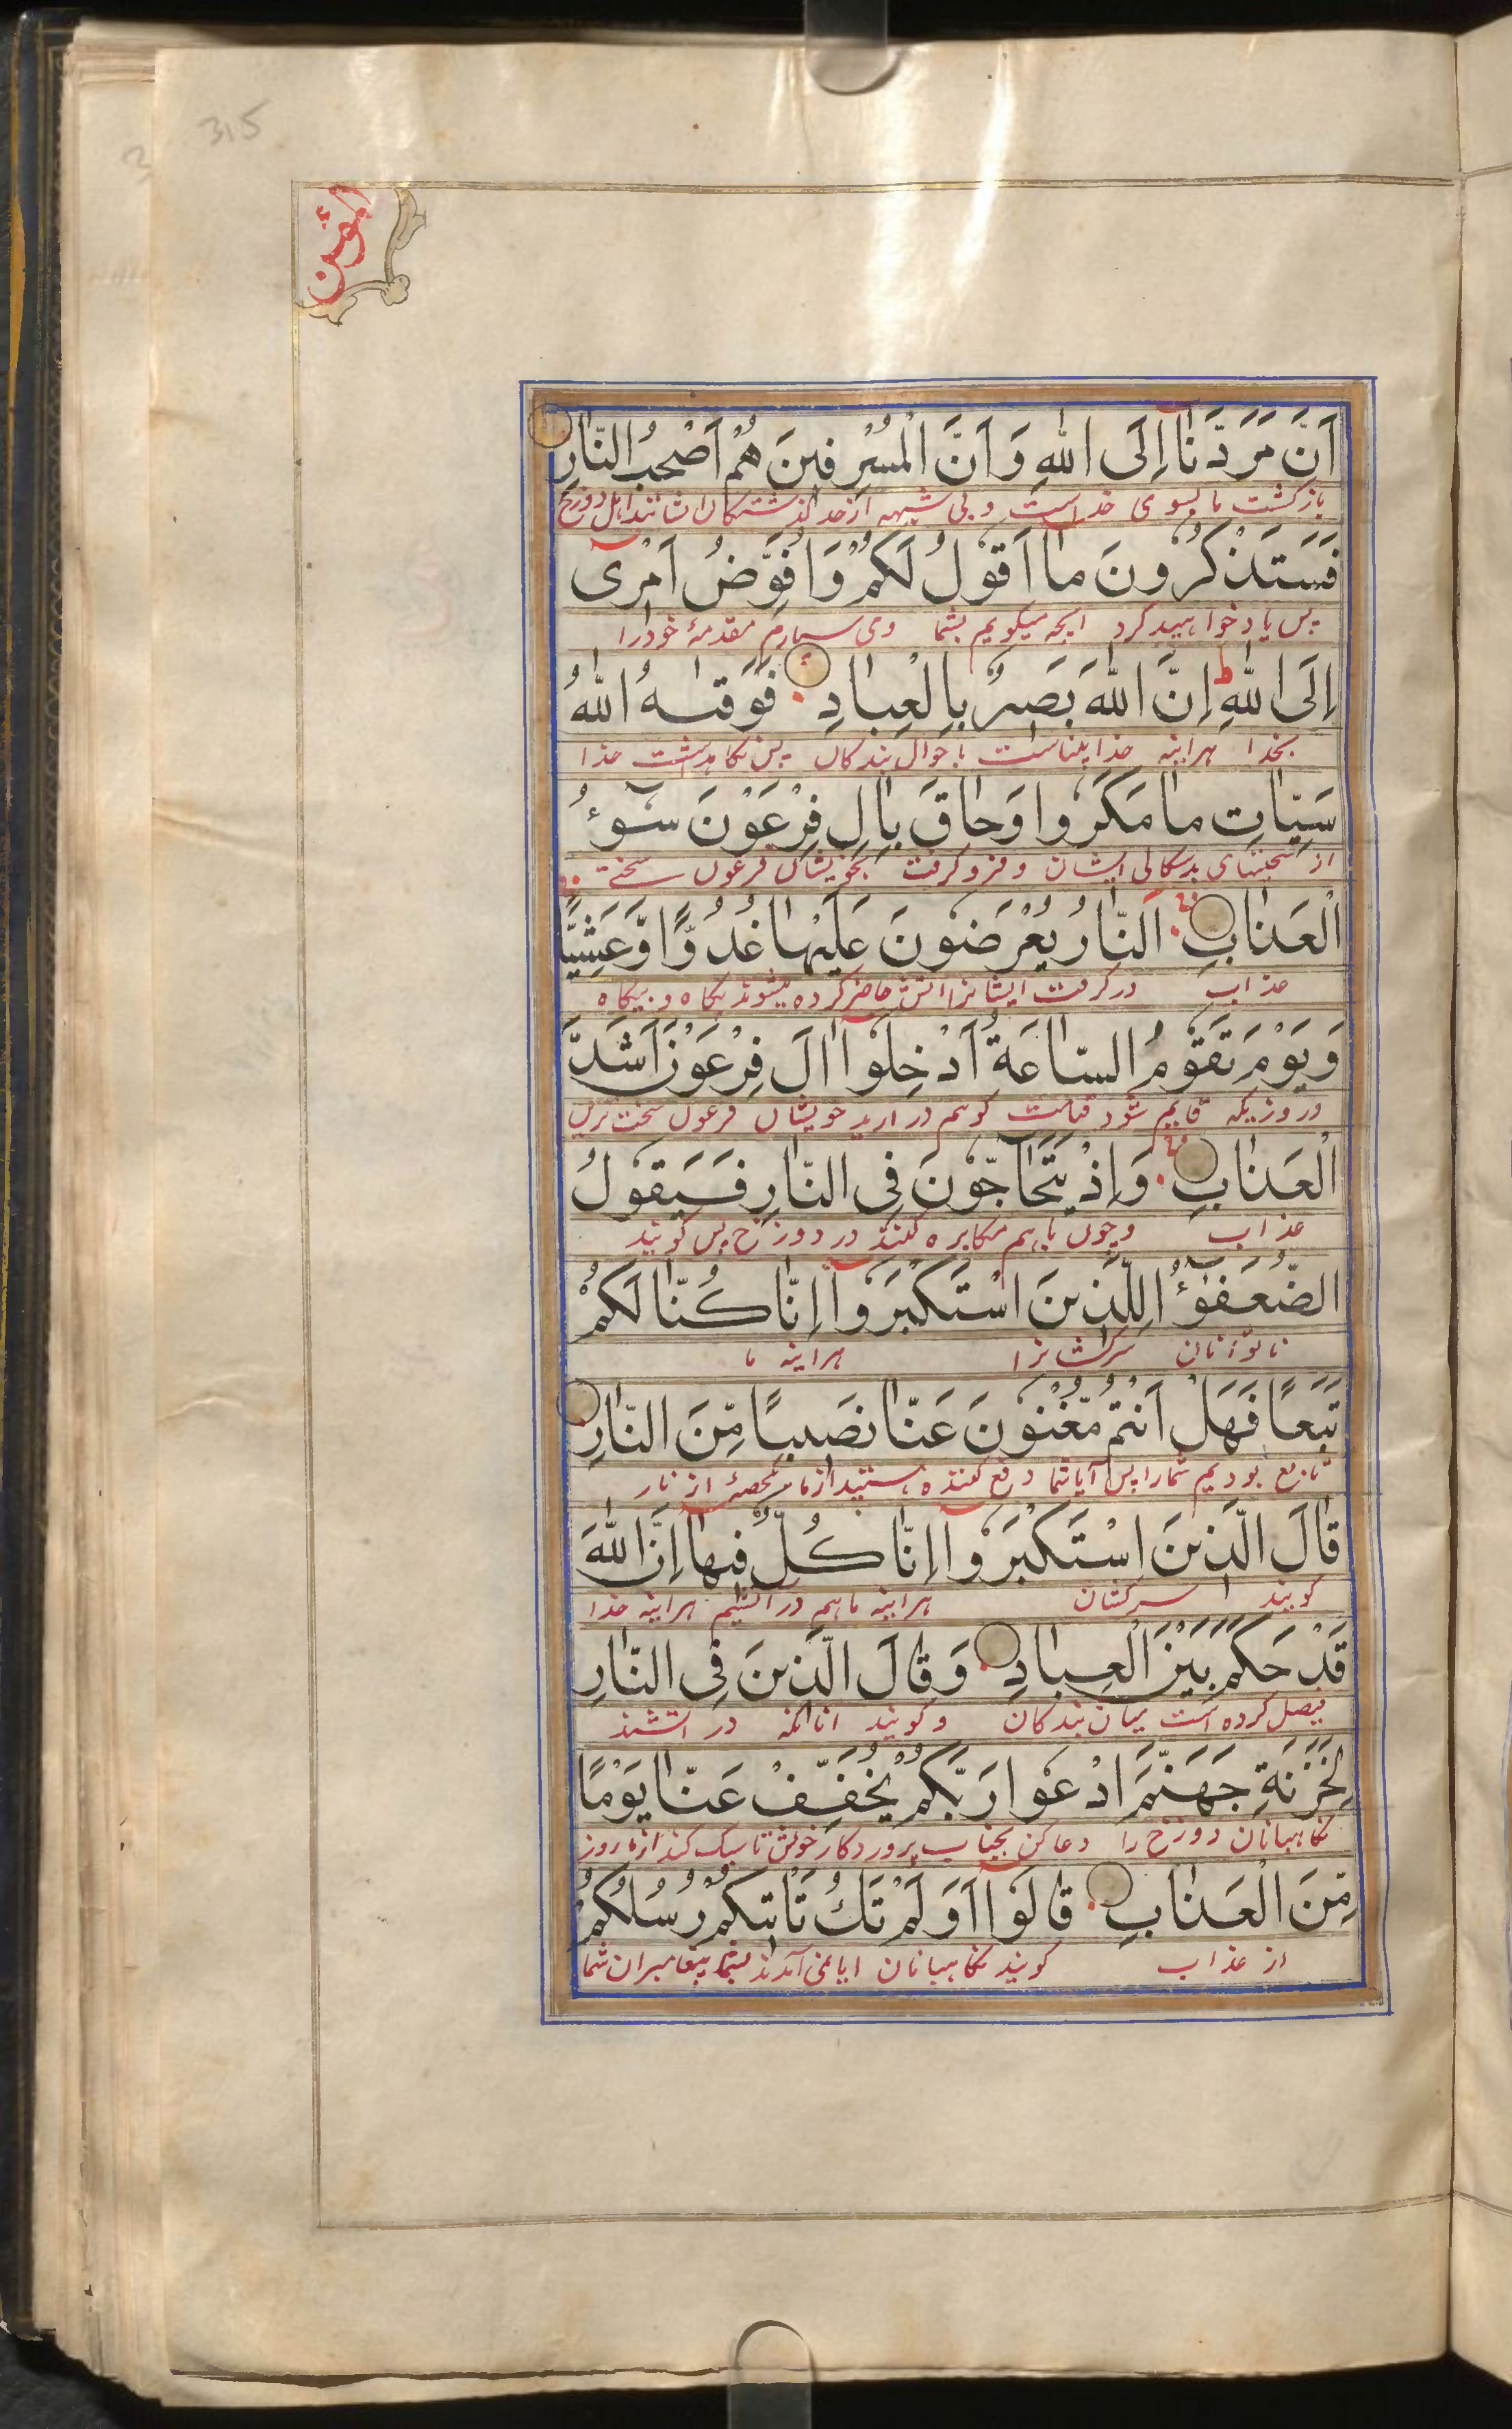 315
المؤمن
اَنَّ مَرَدَّنَا اِلَى اللّٰهِ وَاَنَّ الْمُسْرِفِينَ هُمْ اَصْحٰبُ النَّارِ
بازکشت ما بسوی خداست و بی شبهه ازحد کذشتکان ایشانند اهل دوزخ
فَسَتَذْكُرُونَ مَا اَقُولُ لَكُمْ وَاُفَوِّضُ اَمْرِى
پس یاد خواهید کرد انچه میکویم بشما ومی سپارم مقدمهٔ خودرا
اِلَى اللّٰهِ ط اِنَّ اللّٰهَ بَصِيرٌ بِالْعِبَادِ فَوَقٰىهُ اللّٰهُ
بخدا هراینه خدا بیناست باحوال بندکان پس نکاهداشت خدا
سَيِّاٰتِ مَا مَكَرُوا وَحَاقَ بِاٰلِ فِرْعَوْنَ سُوٓءُ
از سختیهای بدسکالی ایشان و فرو کرفت بخویشان فرعون سختی
الْعَذَابِ اَلنَّارُ يُعْرَضُونَ عَلَيْهَا غُدُوًّا وَّعَشِيًّا
عذاب درکرفت ایشانرا اتش حاضر کرده میشوند پکاه و بیکاه
وَيَوْمَ تَقُومُ السَّاعَةُ اَدْخِلُوا اٰلَ فِرْعَوْنَ اَشَدَّ
و روزیکه قایم شود قیامت کوییم در ارید خویشان فرعون سخت ترین
الْعَذَابِ وَاِذْ يَتَحَاجُّوْنَ فِى النَّارِ فَيَقُولُ
عذاب و چون باهم مکابره کنند در دوزخ پس کویند
الضُّعَفٰٓؤُا لِلَّذِينَ اسْتَكْبَرُوا اِنَّا كُنَّا لَكُمْ
ناتوانان سرکشانرا هراینه ما
تَبَعًا فَهَلْ اَنْتُمْ مُّغْنُوْنَ عَنَّا نَصِيبًا مِّنَ النَّارِ
تابع بودیم شمارا پس آیا شما دفع کننده هستید ازما حصهٔ از نار
قَالَ الَّذِينَ اسْتَكْبَرُوا اِنَّا كُلٌّ فِيهَا اِنَّ اللّٰهَ
کویند سرکشان هراینه ماهمه در اتشیم هراینه خدا
قَدْ حَكَمَ بَيْنَ الْعِبَادِ وَقَالَ الَّذِينَ فِى النَّارِ
فیصل کرده است میان بندکان و کویند انانکه در اتشند
لِخَزَنَةِ جَهَنَّمَ ادْعُوا رَبَّكُمْ يُخَفِّفْ عَنَّا يَوْمًا
نکاهبانان دوزخ را دعا کن بجناب پروردکار خویش تا سبک کند ازما روز
مِّنَ الْعَذَابِ قَالُوا اَوَلَمْ تَكُ تَأْتِيكُمْ رُسُلُكُمْ
از عذاب کویند نکاهبانان ایا نمی آمدند بشما پیغامبران شما